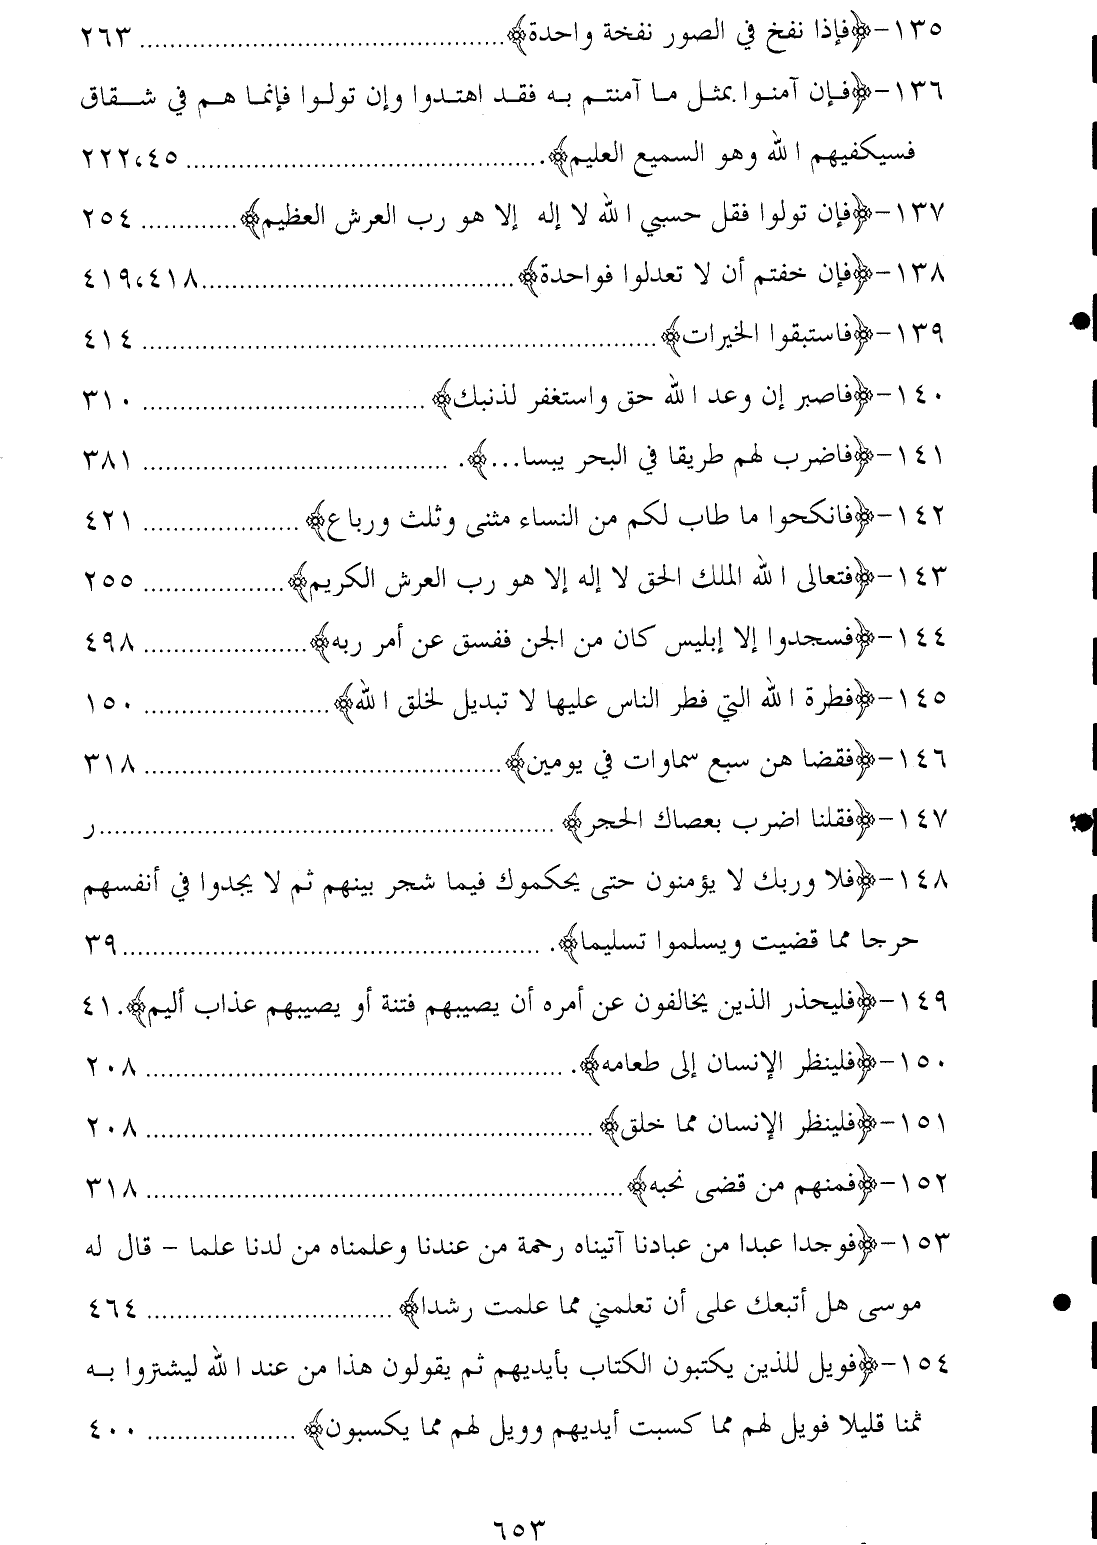 ١٣٥-﴿فإذا نفخ في الصور نفخة واحدة﴾ ........ ٢٦٣
١٣٦-﴿فإن آمنوا بمثل ما آمنتم به فقد اهتدوا وإن تولوا فإنما هم في شقاق
فسيكفيهم الله وهو السميع العليم﴾. ........ ٢٢٢،٤٥
١٣٧-﴿فإن تولوا فقل حسبي الله لا إله إلا هو رب العرش العظيم﴾ ........ ٢٥٤
١٣٨-﴿فإن خفتم أن لا تعدلوا فواحدة﴾ ........ ٤١٩،٤١٨
١٣٩-﴿فاستبقوا الخيرات﴾ ........ ٤١٤
١٤٠-﴿فاصبر إن وعد الله حق واستغفر لذنبك﴾ ........ ٣١٠
١٤١-﴿فاضرب لهم طريقا في البحر يبسا...﴾. ........ ٣٨١
١٤٢-﴿فانكحوا ما طاب لكم من النساء مثنى وثلث ورباع﴾ ........ ٤٢١
١٤٣-﴿فتعالى الله الملك الحق لا إله إلا هو رب العرش الكريم﴾ ........ ٢٥٥
١٤٤-﴿فسجدوا إلا إبليس كان من الجن ففسق عن أمر ربه﴾ ........ ٤٩٨
١٤٥-﴿فطرة الله التي فطر الناس عليها لا تبديل لخلق الله﴾ ........ ١٥٠
١٤٦-﴿فقضا هن سبع سماوات في يومين﴾ ........ ٣١٨
١٤٧-﴿فقلنا اضرب بعصاك الحجر﴾ ........ ر
١٤٨-﴿فلا وربك لا يؤمنون حتى يحكموك فيما شجر بينهم ثم لا يجدوا في أنفسهم
حرجا مما قضيت ويسلموا تسليما﴾. ........ ٣٩
١٤٩-﴿فليحذر الذين يخالفون عن أمره أن يصيبهم فتنة أو يصيبهم عذاب أليم﴾. ٤١
١٥٠-﴿فلينظر الإنسان إلى طعامه﴾. ........ ٢٠٨
١٥١-﴿فلينظر الإنسان مما خلق﴾ ........ ٢٠٨
١٥٢-﴿فمنهم من قضى نحبه﴾ ........ ٣١٨
١٥٣-﴿فوجدا عبدا من عبادنا آتيناه رحمة من عندنا وعلمناه من لدنا علما - قال له
موسى هل أتبعك على أن تعلمني مما علمت رشدا﴾ ........ ٤٦٤
١٥٤-﴿فويل للذين يكتبون الكتاب بأيديهم ثم يقولون هذا من عند الله ليشتروا به
ثمنا قليلا فويل لهم مما كسبت أيديهم وويل لهم مما يكسبون﴾ ........ ٤٠٠
٦٥٣